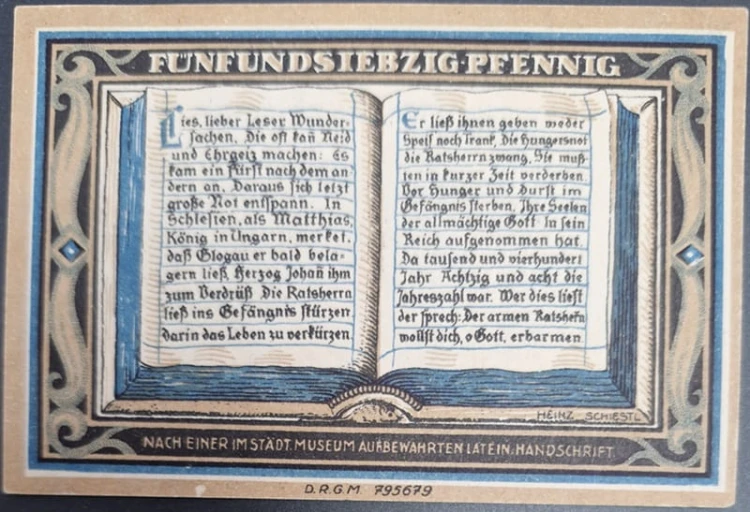 FÜNFUNDSIEBZIG·PFENNIG
Lies, lieber Leser Wunder-
sachen, Die oft kañ Neid
und Ehrgeiz machen: Es
kam ein Fürst nach dem an
dern an, Daraus sich letzt
große Not entspann. In
Schlesien, als Matthias,
König in Ungarn, merket,
daß Glogau er bald bela-
gern ließ, Herzog Johañ ihm
zum Verdrüß Die Ratsherrn
ließ ins Gefängnis stürzen,
darin das Leben zu verkürzen
Er ließ ihnen geben weder
Speis noch Trank, Die Hungersnot
die Ratsherrn zwang, Sie muß-
ten in kurzer Zeit verderben
Vor Hunger und Durst im
Gefängnis sterben, Ihre Seelen
der allmächtige Gott In sein
Reich aufgenommen hat.
Da tausend und vierhundert
Jahr Achtzig und acht die
Jahreszahl war. Wer dies liest
der sprech: Der armen Ratsherrn
wollst dich, o Gott, erbarmen
HEINZ SCHIESTL
NACH EINER IM STÄDT. MUSEUM AUFBEWAHRTEN LATEIN. HANDSCHRIFT.
D.R.G.M. 795679